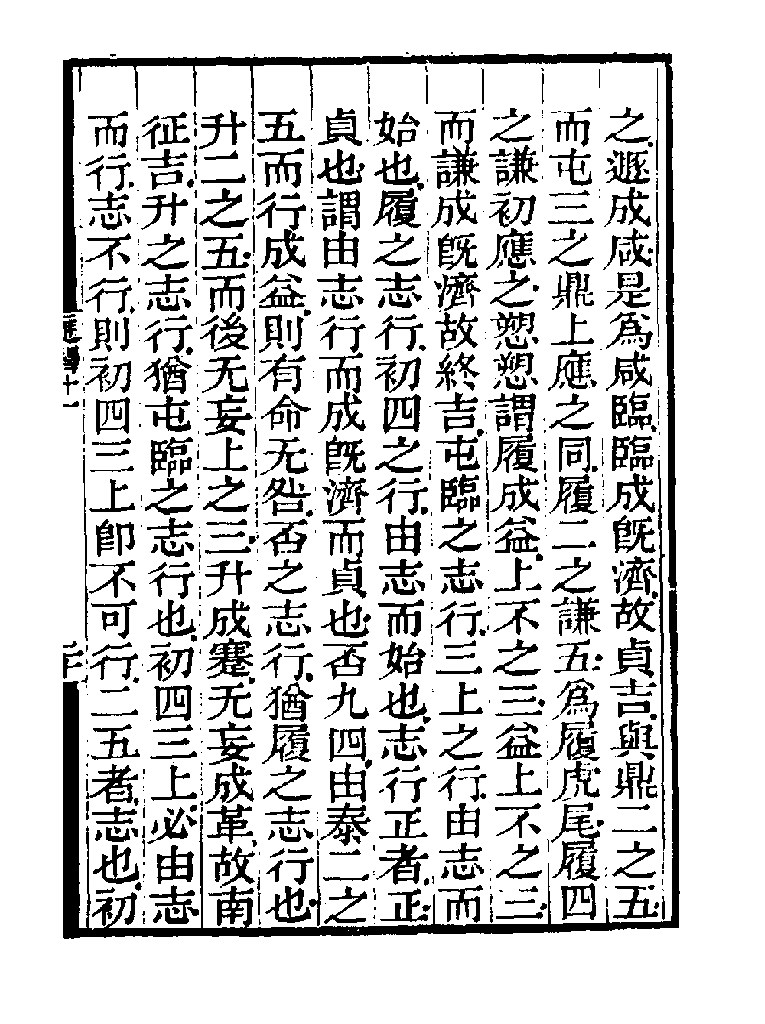 之遯成咸是爲咸臨臨成旣濟故貞吉與鼎二之五
而屯三之鼎上應之同履二之謙五爲履虎尾履四
之謙初應之愬愬謂履成益上不之三益上不之三
而謙成旣濟故終吉屯臨之志行三上之行由志而
始也履之志行初四之行由志而始也志行正者正
貞也謂由志行而成旣濟而貞也否九四由泰二之
五而行成益則有命无咎否之志行猶履之志行也
升二之五而後无妄上之三升成蹇无妄成革故南
征吉升之志行猶屯臨之志行也初四三上必由志
而行志不行則初四三上卽不可行二五者志也初